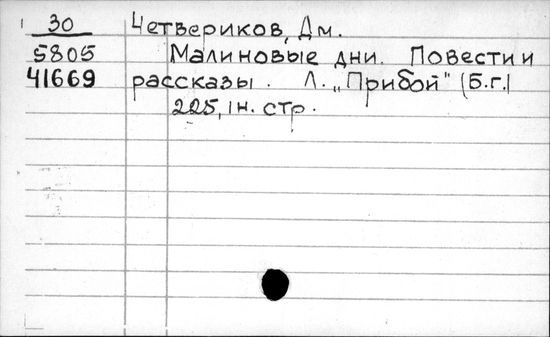 30 Четвериков, Дм.
5805 Малиновые дни. Повести и
41669 рассказы. Л. „Прибой" (Б.г.)
225, 1 н. стр.